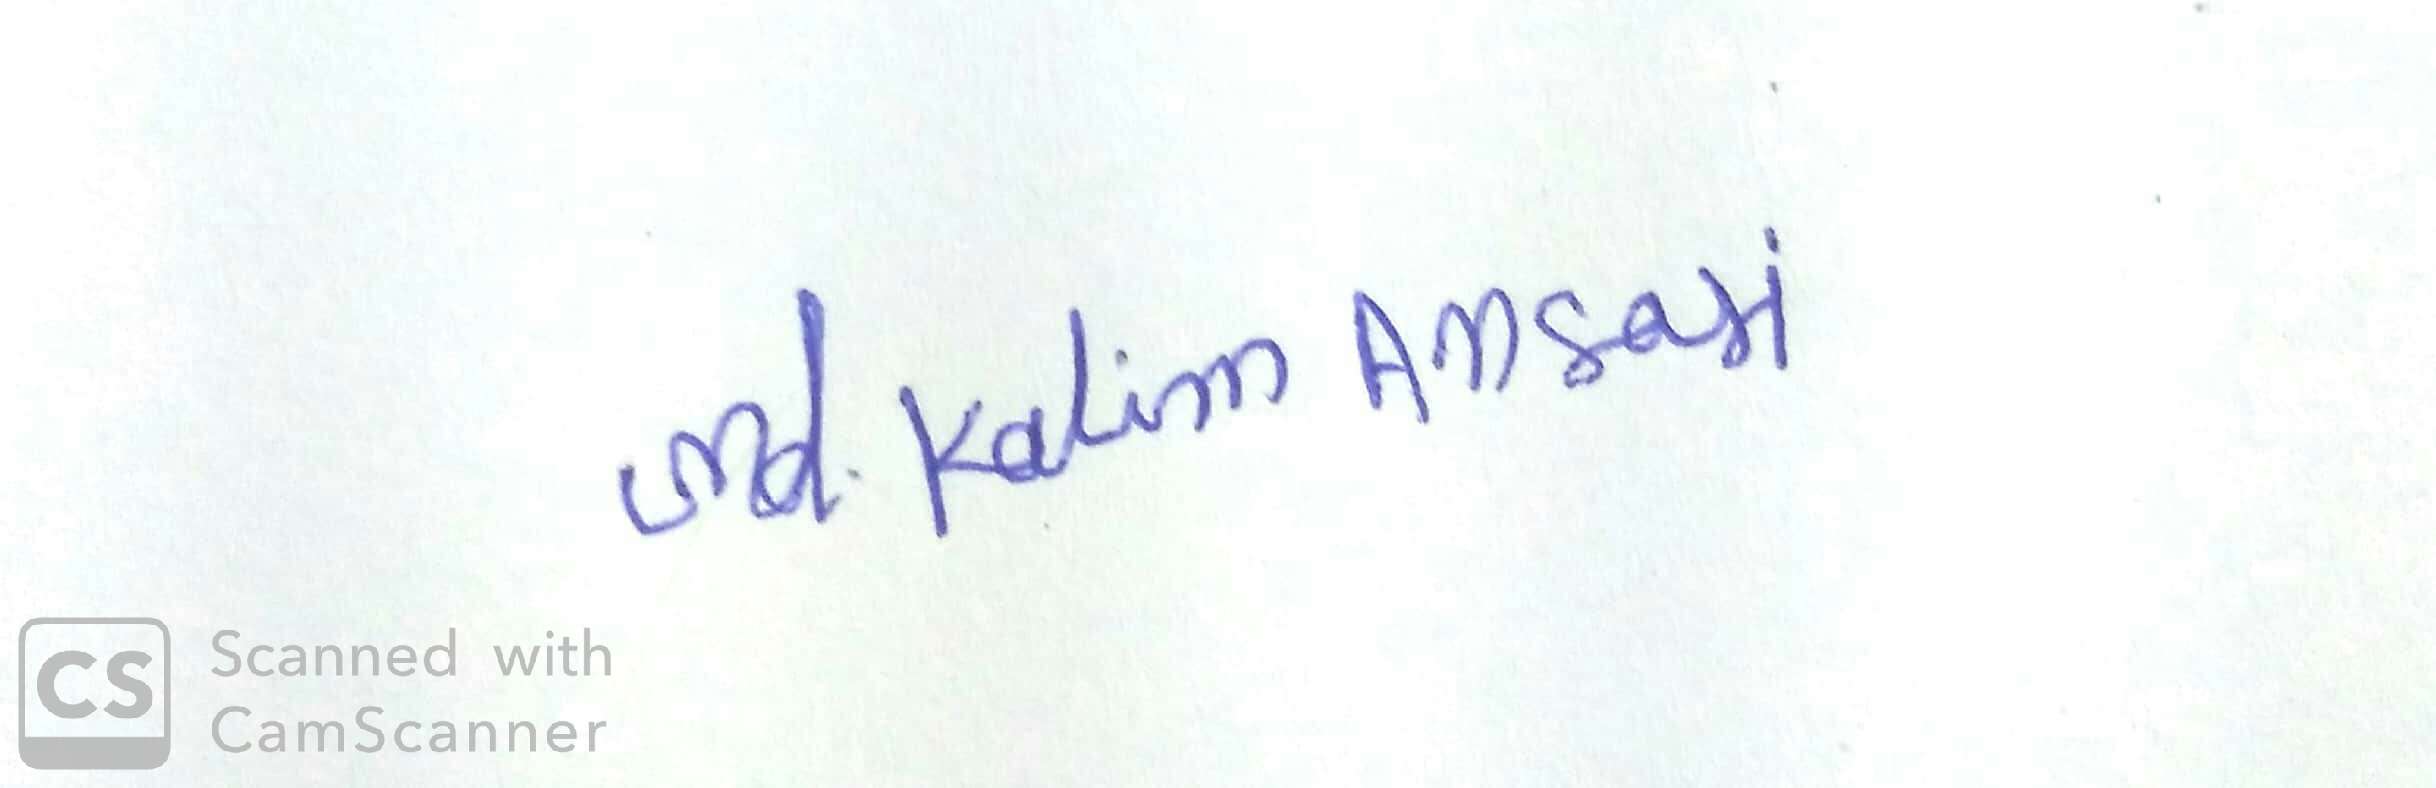 Md. Kalim Ansari
CS Scanned with
CamScanner